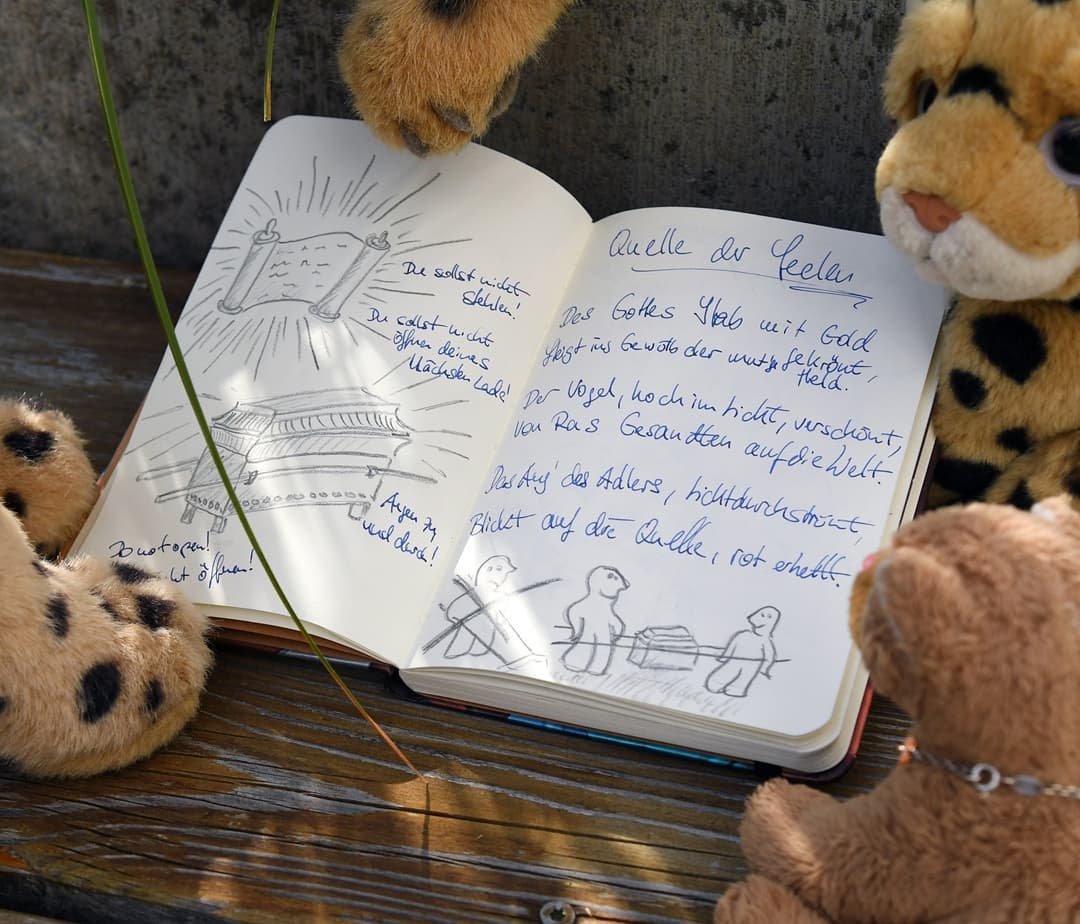 Du sollst nicht
stehlen!
Du sollst nicht
öffnen deines
Nächsten Lade!
Augen zu
und durch!
Do not open!
öffnen!
Quelle der Seelen
Des Gottes Stab mit Gold
gekrönt,
steigt ins Gewölb der mutge
Held.
Der Vogel, hoch im Licht, verschönt,
von Ra's Gesandten auf die Welt.
Das Aug' des Adlers, lichtdurchströmt,
Blickt auf die Quelle, rot erhellt.